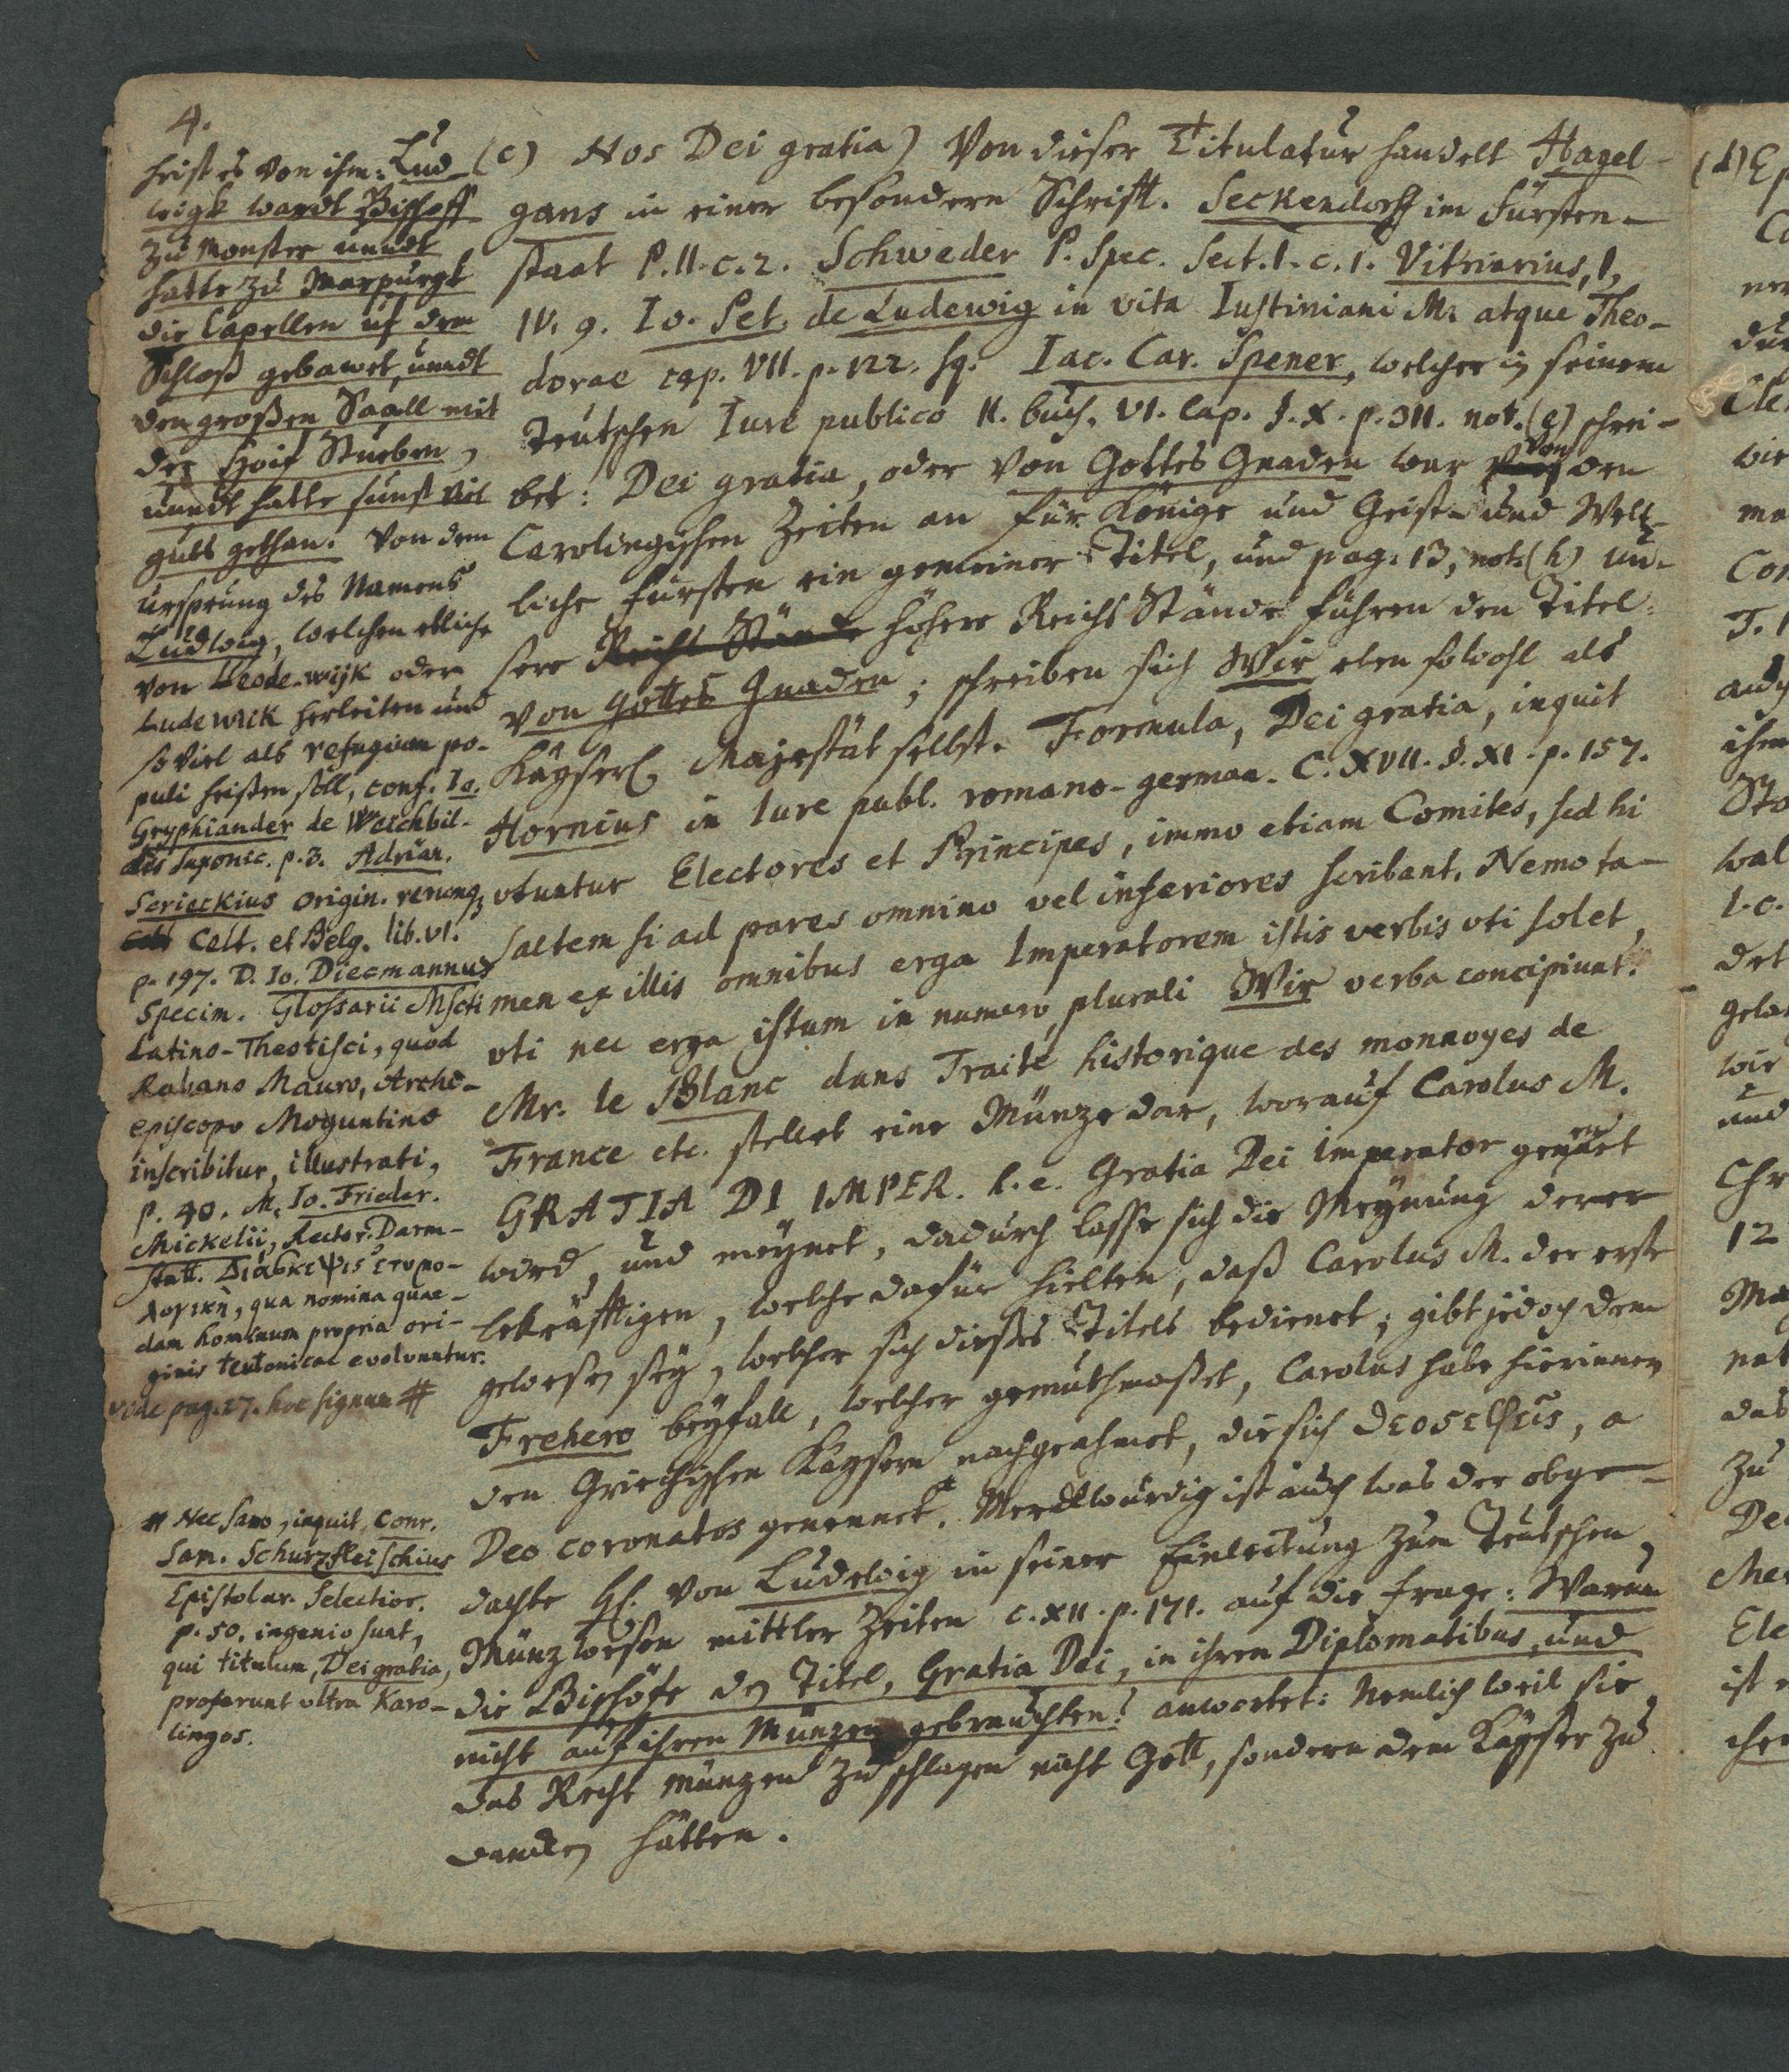 4.
heist es von ihm: Lud-
wigk wardt Bischoff
zu Monster unndt
hatte zu Marpurgk
die Capellen uf dem
Schloß gebawet, unndt
den großen Saall mit
der Hoif Stueben,
unndt hatte sunst viel
guts gethan. Von dem
Ursprung des Namens
Ludwig, welchen etliche
von Leode-wijk oder
Ludewick herleiten und
so viel als refugium po-
puli heißen soll, conf. Io.
Gryphiander de Weichbil-
dis Saxonic. p. 3. Adrian.
Scrieckius Origin. rerumq;
Celt. et Belg. lib. VI.
p. 197. D. Io. Diecmannus
Specim. Glossarii Mscti
Latino-Theotisci, quod
Rabano Mauro, Archi-
episcopo Moguntino
inscribitur, illustrati,
p. 40. M. Io. Frieder.
Mickelii, Rector. Darm-
statt. Διάσκεψις ετυμο-
λογικὴ, qua nomina quae-
dam hominum propria ori-
ginis teutonicae evolvuntur.
vide pag. 27. hoc signum #
# Nec sano, inquit, Conr.
Sam. Schurzfleischius
Epistolar. Selectior.
p. 50. ingenio sunt,
qui titulum, Dei gratia,
proferunt ultra Karo-
lingos.
(c) Nos Dei gratia) Von dieser Titulatur handelt Hagel-
gans in einer besondern Schrift. Seckendorff im Fürsten-
staat P. II. c. 2. Schweder P. Spec. Sect. I. c. 1. Vitriarius, I,
IV. 9. Io. Pet. de Ludewig in vita Iustiniani M. atque Theo-
dorae cap. VII. p. 122. sq. Iac. Car. Spener, welcher in seinem
Teutschen Iure publico II. Buch. VI. Cap. §. X. p. 311. not. (e) schrei-
bet: Dei gratia, oder von Gottes Gnaden war von den
Carolingischen Zeiten an für Könige und Geist- und Welt-
liche Fürsten ein gemeiner Titel, und pag. 13, not. (h) un-
sere Reichs Stände höhere Reichs Stände führen den Titel:
von Gottes Gnaden; schreiben sich Wir eben sowohl als
Kayserl. Majestät selbst. Formula, Dei gratia, inquit
Hornius in Iure publ. romano-german. C. XVII. §. XI. p. 157.
utuntur Electores et Principes, immo etiam Comites, sed hi
saltem si ad pares omnino vel inferiores scribant. Nemo ta-
men ex illis omnibus erga Imperatorem istis verbis uti solet,
uti nec erga istum in numero plurali Wir verba concipiunt.
Mr. le Blanc dans Traité historique des monnoyes de
France etc. stellet eine Münze dar, worauf Carolus M.
GRATIA DI IMPER. h. e. Gratia Dei Imperator genent
wird, und meynet, dadurch lasse sich die Meynung derer
bekräfftigen, welche dafür hielten, daß Carolus M. der erste
gewesen sey, welcher sich dießes Titels bedienet; gibt jedoch dem
Frehero beyfall, welcher gemuthmaßet, Carolus habe hierinnen
den Griechischen Kaysern nachgeahmet, die sich Θεοσεφεις, a
Deo coronatos genennet. Merckwürdig ist auch was der obge-
dachte H. von Ludewig in seiner Einleitung zum Teutschen
Münzwesen mittler Zeiten c. XII. p. 171. auf die Frage: Warum
die Bischöfe den Titel, Gratia Dei, in ihren Diplomatibus, und
nicht auf ihren Münzen gebrauchten? anwortet: Nemlich weil sie
das Recht Münzen zu schlagen nicht Gott, sondern dem Kayser zu
dancken hätten.